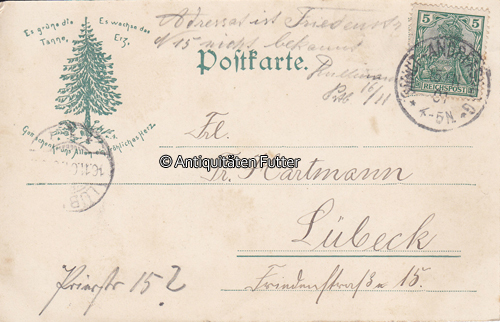 Es grüne die Tanne,
Es wachse das Erz,
Gott schenke uns Allen
fröhliches Herz
Adressat ist Friedenstr
№ 15 nicht bekannt
16/11
Postkarte.
5 5
REICHSPOST
ANDRE
4-5N.
LÜB
© Antiquitäten Futter
Frl.
Fr. Hartmann
Lübeck
Friedenstraße 15.
Prierstr 15?